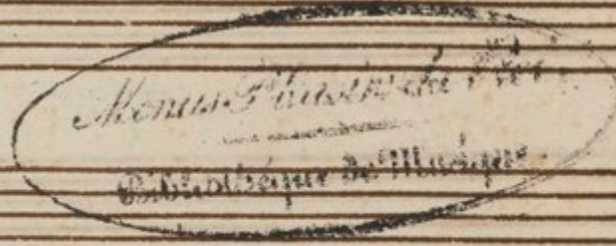 Menus Plaisirs du Roi
Bibliothéque de Musique